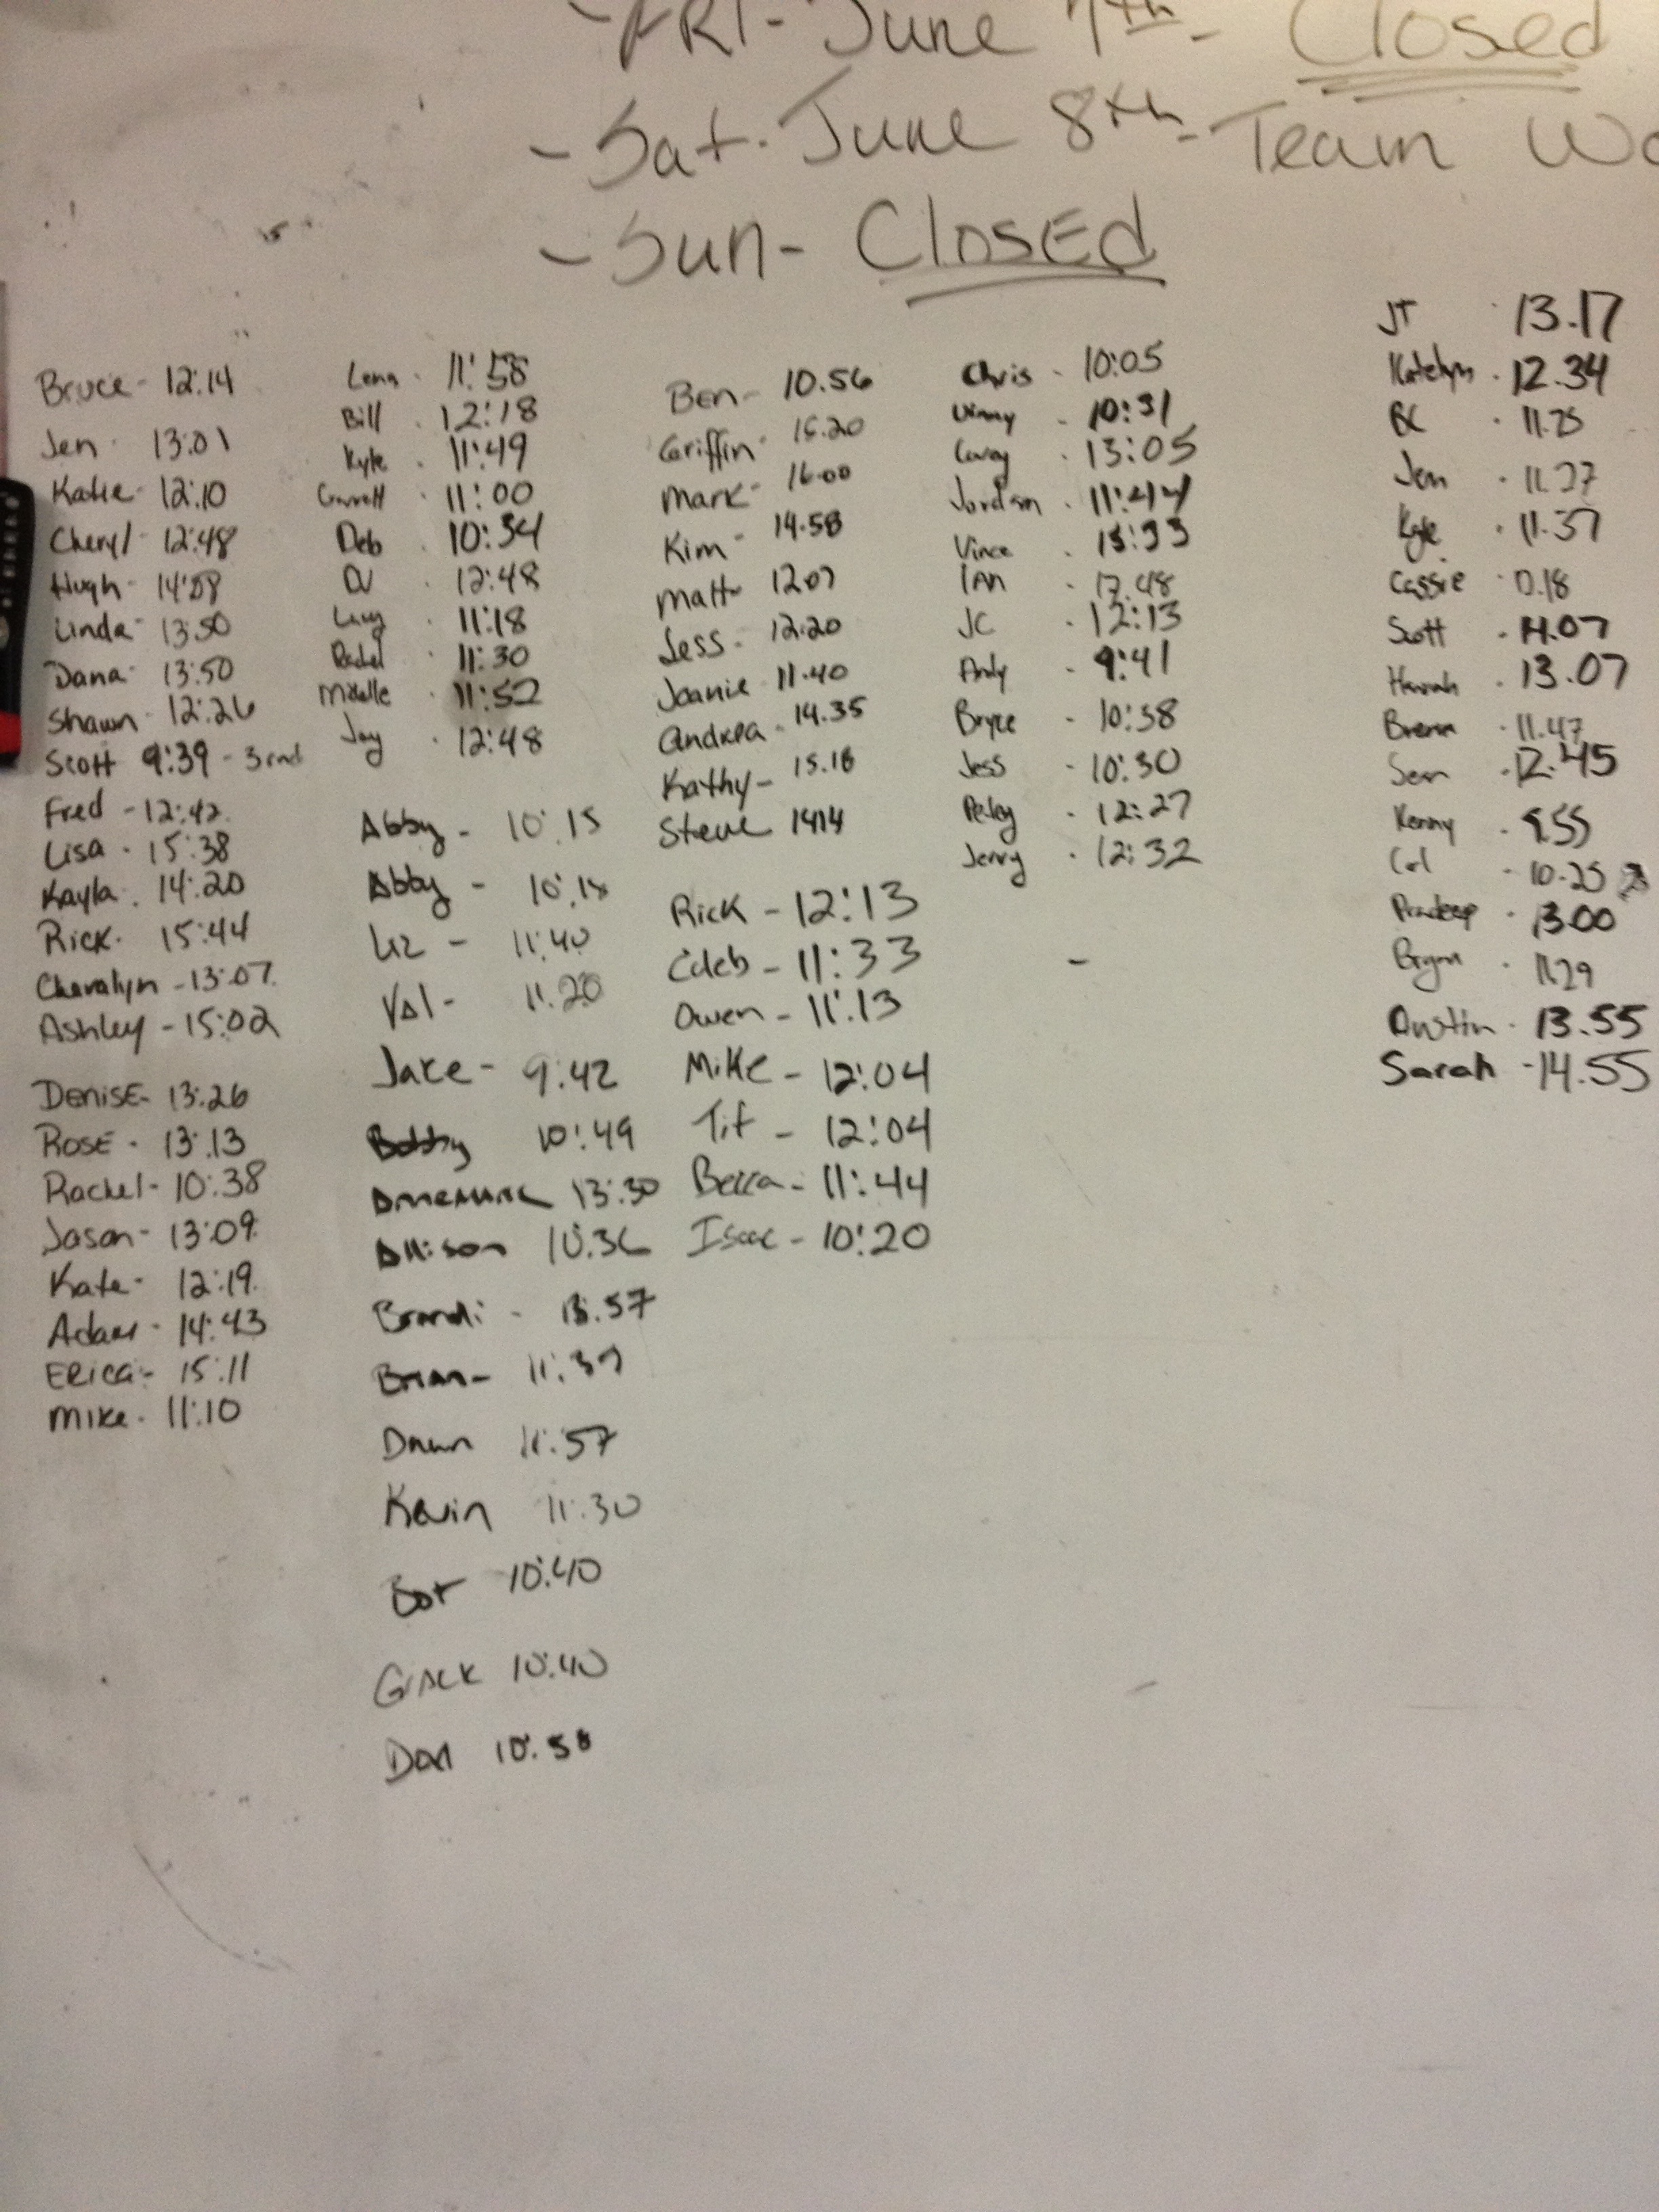 - FRI - June 7th - Closed
- Sat. June 8th - Team
- Sun - ClosEd
Bruce - 12:14
Jen - 13:01
Katie - 12:10
Cheryl - 12:48
Hugh -
Linda - 13:50
Dana - 13:50
Shawn - 12:26
Scott 9:39 - 3 rnd
Fred - 12:42
Lisa - 15:38
Kayla . 14:20
Rick - 15:44
Cheralyn - 13:07
Ashley - 15:02
DenisE - 13:26
RosE - 13:13
Rachel - 10:38
Jason - 13:09
Kate - 12:19
Adam - 14:43
Erica - 15:11
Mike - 11:10
Lena - 11:58
Bill . 12:18
Kyle . 11:49
Garrett . 11:00
Deb . 10:34
. 12:48
. 11:18
Rachel . 11:30
Michelle . 11:52
Jay . 12:48
Abby - 10:15
Abby -
Liz - 11:40
Val - 11:20
Jake - 9:42
10:49
Annemarie 13:30
Allison 10:36
Brandi - 13:57
Brian - 11:39
Dawn 11:57
Kevin 11:30
10:40
10:40
Dan
Ben - 10.56
Griffin - 15.20
Mark - 16.00
Kim - 14.58
Matt - 12.07
Jess - 12:20
Joanie 11.40
Andrea - 14.35
Kathy - 15.18
Steve 1414
Rick - 12:13
Caleb - 11:33
Owen - 11:13
Mike - 12:04
Tif - 12:04
Becca - 11:44
Isaac - 10:20
Chris - 10:05
Vinny - 10:31
Corey - 13:05
Jordan - 11:44
Vince . 15:33
IAN - 12.48
JC . 12:13
Andy - 9:41
Bryce - 10:38
Jess - 10:30
. 12:27
Jerry . 12:32
JT . 13.17
Katelyn . 12.34
. 11.25
Jen . 11.27
Kyle . 11.37
Cassie
Scott - 14.07
Hannah . 13.07
Brenn - 11.47
Sean - 12.45
Kenny - 9.55
Carl - 10.25
Pradeep - 13.00
Brynn . 11.29
Austin - 13.55
Sarah - 14.55